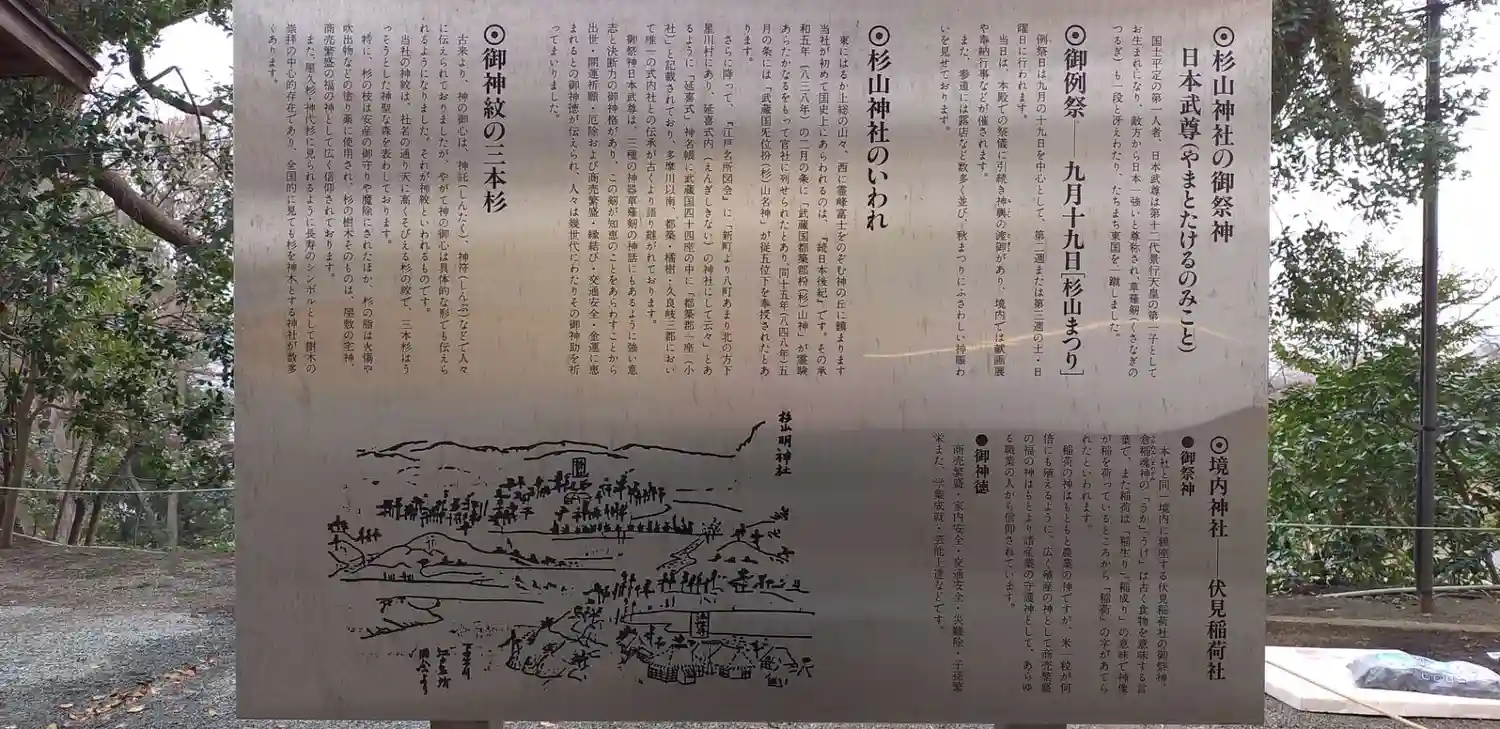 ◉杉山神社の御祭神
日本武尊(やまとたけるのみこと)
国土平定の第一人者、日本武尊は第十二代景行天皇の第一子として
お生まれになり、敵方から日本一強いと尊称され、草薙剣(くさなぎの
つるぎ)も一段と冴えわたり、たちまち東国を一蹴しました。
◉御例祭──九月十九日[杉山まつり]
例祭日は九月の十九日を中心として、第二週または第三週の土・日
曜日に行われます。
当日は、本殿での祭儀に引続き神輿の渡御があり、境内では献画展
や奉納行事などが催されます。
また、参道には露店など数多く並び、秋まつりにふさわしい賑賑わ
いを見せております。
◉杉山神社のいわれ
東にはるか上総の山々、西に霊峰富士をのぞむ神の丘に鎮まります
当社が初めて国史上にあらわれるのは、「続日本後紀」です。その承
和五年(八三八年)の二月の条に「武蔵国都築郡枌(杉)山神」が霊験
あらたかなるをもって官社に列せられたとあり、同十五年(八四八年)五
月の条には「武蔵国旡位枌(杉)山名神」が従五位下を奉授されたとあ
ります。
さらに降って、『江戸名所図会』に「新町より八町あまり北の方下
星川村にあり、延喜式内(えんぎしきない)の神社にして云々」とあ
るように「延喜式」神名帳に武蔵国四十四座の中に「都築郡一座(小
社)」と記載されており、多摩川以南、都築・橘樹・久良岐三郡におい
て唯一の式内社との伝承が古くより語り継がれております。
御祭神日本武尊は、三種の神器草薙剣の神話にもあるように強い意
志と決断力の御神格があり、この剣が知恵のことをあらわすことから
出世・開運祈願・厄除および商売繁盛・縁結び・交通安全・金運に恵
まれるとの御神徳が伝えられ、人々は幾世代にわたりその御神助を祈
ってまいりました。
◉御神紋の三本杉
古来より、神の御心は、神託(しんたく)、神符(しんぷ)などで人々
に伝えられておりましたが、やがて神の御心は具体的な形でも伝えら
れるようになりました。それが神紋といわれるものです。
当社の神紋は、社名の通り天に高くそびえる杉の厳で、三本杉はう
っそうとした神聖な森を表わしております。
特に、杉の枝は安産の御守りや魔除にされたほか、杉の脂は火傷や
吹出物などの塗り薬に使用され、杉の樹木そのものは、屋敷の宅神、
商売繁盛の福の神として広く信仰されております。
また、屋久杉・神代杉に見られるように長寿のシンボルとして樹木の
崇拝の中心的存在であり、全国的に見ても杉を神木とする神社が数多
くあります。
◉境内神社──伏見稲荷社
●御祭神
本社と同一境内に鎮座する伏見稲荷社の御祭神、
倉稲魂神の「うか」「うけ」は古く食物を意味する言
葉で、また稲荷は「稲生り」「稲成り」の意味で神像
が稲を荷っているところから「稲荷」の字があてら
れたといわれます。
稲荷の神はもともと農業の神ですが、米一粒が何
倍にも殖えるように、広く殖産の神として商売繁盛
の福の神はもとより諸産業の守護神として、あらゆ
る職業の人から信仰されています。
●御神徳
商売繁盛・家内安全・交通安全・災難除・子孫繁
栄また、学業成就・芸能上達などです。
杉山明神社